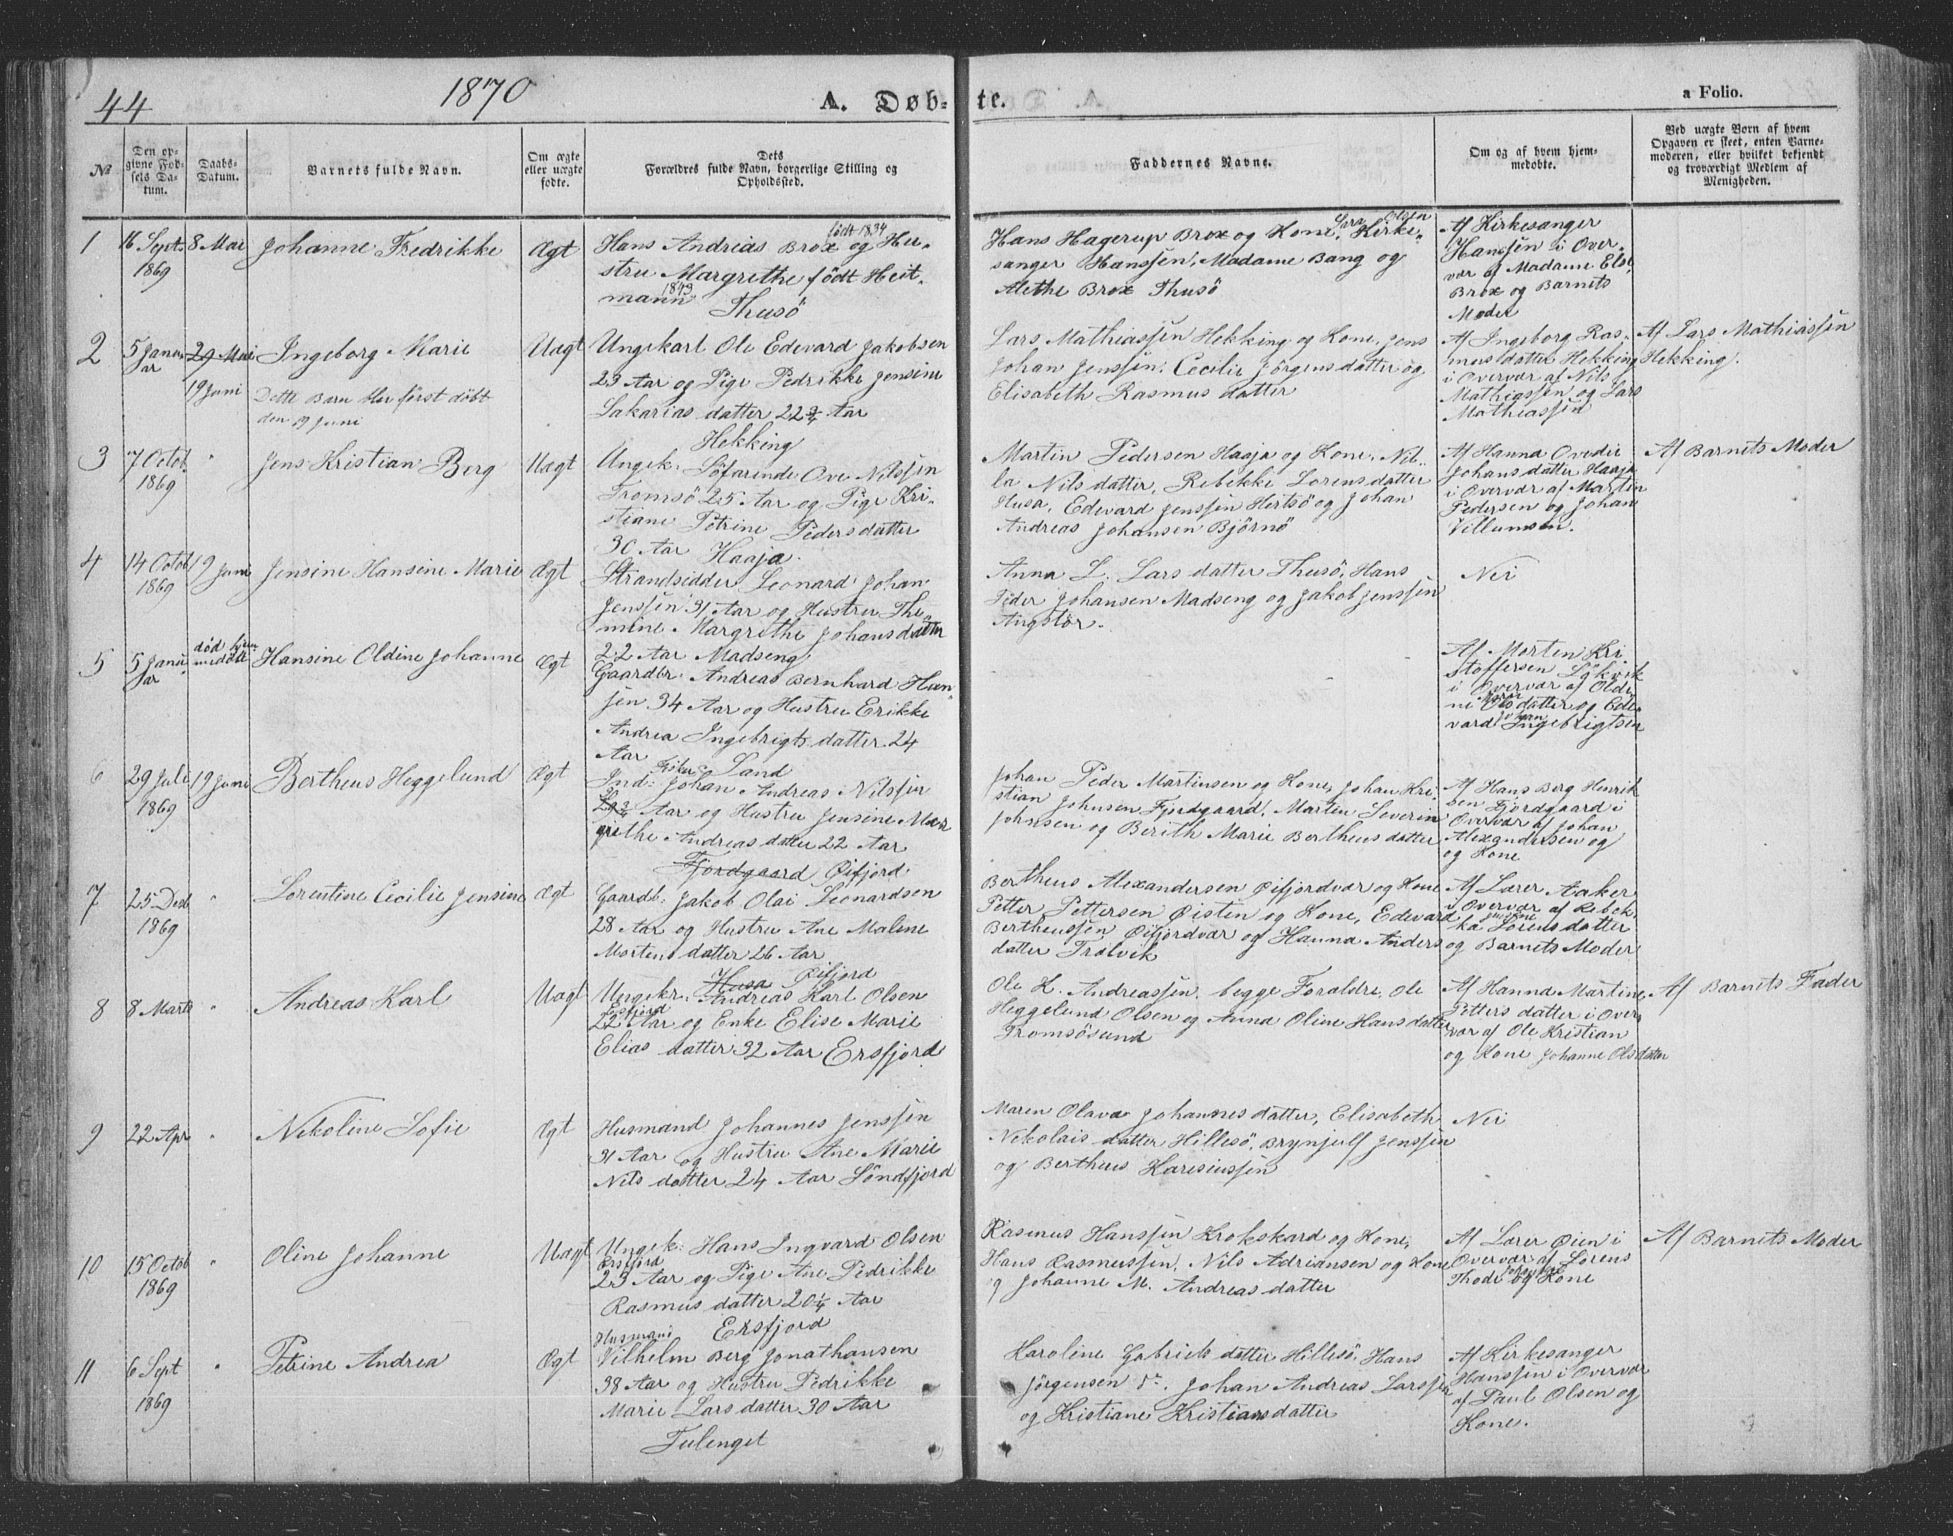 44
1870
A. Døb-
te.
a Folio.
№
Den op-
givne Fød-
sels Da-
tum.
Daabs-
Datum.
Barnets fulde Navn.
Om ægte
eller uægte
fødte.
Dets
Forældres fulde Navn, borgerlige Stilling og
Opholdssted.
Faddernes Navne.
Om og af hvem hjem-
medøbte.
Ved uægte Born af hvem
Opgaven er skeet, enten Barne-
moderen, eller hvilket bekjendt
og troværdigt Medlem af
Menigheden.
1
16 Sept.
1869
8 Mai
Johanne Fredrikke
Ægt
født 1834
Hans Andreas Brox og Hu-
stru Margrethe født Heit-
mann 1843
Thusö
Lara Olsen
Hans Hagerup Brox og Kone, Kirke-
sanger Hanssen, Madame Bang og
Alethe Brox Thusö
Af Kirkesanger
Hanssen i Over-
vær af Madame Els.
Brox og Barnets
Moder
2
5 Janu-
ar
29 Mai
19 Juni
Ingeborg Marie
Dette Barn blev først døbt
den 19 Juni
Uægt
Ungekarl Ole Edevard Jakobsen
23 Aar og Pige Pedrikke Jensine
Sakarias datter 22 3/4 Aar
Hekking
Lars Mathiassen Hekking og Kone, Jens
Johan Jenssen, Cecilie Jörgensdatter og
Elisabeth Rasmus datter
Af Ingeborg Ras-
musdatter Hekking
i Overvær af Nils
Mathiassen og Lars
Mathiassen
Af Lars Mathiassen
Hekking.
3
7 Octob
1869
"
Jens Kristian Berg
Uægt
Ungek. Söfarende Ove Nilssen
Tromsö 25 Aar og Pige Kri-
stiane Petrine Pedersdatter
30 Aar Haaja.
Martin Pedersen Haaja og Kone, Nil-
la Nilsdatter, Rebekke Lorensdatter
Husa, Edevard Jenssen Hertsö og Johan
Andreas Johansen Björnö
Af Hanna Ovedie
Johansdatter Haaja
i Overvær af Martin
Pedersen og Johan
Villumsen.
Af Barnets Moder
4
14 Octob
1869
19 Juni
Jensine Hansine Marie
Ægt
Strandsidder Leonard Johan
Jenssen 31 Aar og Hustru The-
mine Margrethe Johansdatter
22 Aar Madseng
Anna L. Lars datter Thusö, Hans
Peder Johansen Madseng og Jakob Jenssen
Angstör.
Nei
5
5 Janu-
ar
død hjem-
medöbt
Hansine Oldine Johanne
Ægt
Gaardbr. Andreas Bernhard Han-
sen 34 Aar og Hustru Erikke
Andrea Ingebrigtsdatter 24
Aar
Sand
Af Morten Kri
stoffersen Lökvik
i Overvær af Oldi-
ne datter og Ede-
vard Johan Ingebrigtsen
6
29 Juli
1869
19 Juni
Bertheus Heggelund
Ægt
Fisker
Ind: Johan Andreas Nilssen
Aar og Hustru Jensine Mar
grethe Andreas datter 22 Aar
Fjordgaard Øifjord
Johan Peder Martinsen og Kone, Johan Kri-
stian Johnsen Fjordgaard, Martin Severin
Johnsen og Berith Marie Bertheusdatter
Af Hans Berg Henrik
sen Fjordgaard i
Overvær af Johan
Alexandersen og
og Kone
7
25 Dec
1869
"
Lorentine Cecilie Jensine
Ægt
Gaardb. Jakob Olai Leonardsen
28 Aar og Hustru Ane Malene
Mortens datter 26 Aar
Husa Øifjord
Bertheus Alexandersen Øifjordvær og Kone
Petter Pettersen Øisten og Kone, Edevard
Bertheussen Øifjordvær og Hanna Anders
datter Trolvik
Af Lærer Aaker
i Overvær af Rebek-
ka Lorensdatter
og Barnets Moder
8
8 Marts
"
Andreas Karl
Uægt
Ungekr. Andreas Karl Olsen
22 Aar og Enke Elise Marie
Elias datter 32 Aar Ersfjord
Ole K. Andreassen, begge Forældre, Ole
Heggelund Olsen og Anna Oline Hansdatter
Tromsösund
Af Hanna Martine
Petters datter i Over-
vær af Ole Kristian
og Kone Johanne Olsdatter
Af Barnets Fader
9
22 Apr
"
Nikoline Sofie
Ægt
Husmand Johannes Jenssen
31 Aar og Hustru Ane Marie
Nils datter 24 Aar Söndfjord
Maren Olava Johannesdatter, Elisabeth
Nikolais datter Hillesö, Brynjulf Jenssen
og Bertheus Kareliussen
Nei
10
15 Octob
1869
"
Oline Johanne
Uægt
Ungek: Hans Ingvard Olsen
Ersfjord
23 Aar og Pige Ane Pedrikke
Rasmus datter 20 1/4 Aar
Ersfjord
Rasmus Hanssen Krokskard og Kone,
Hans Rasmussen, Nils Adriansen og Kone
og Johanne M. Andreas datter
Af Lærer Øien i
Overvær af Lorens
Thode og Kone
Af Barnets Moder
11
6 Sept
1869
"
Petrine Andrea
Ægt
Husmand
Vilhelm Berg Jonathansen
38 Aar og Hustru Pedrikke
Marie Lars datter 30 Aar
Tulenget
Karoline Gabriels datter Hillesö, Hans
Jörgensen do. Johan Andreas Larssen
og Kristiane Kristiansdatter
Af Kirkesanger
Hanssen i Overvær
af Paul Olsen og
Kone.